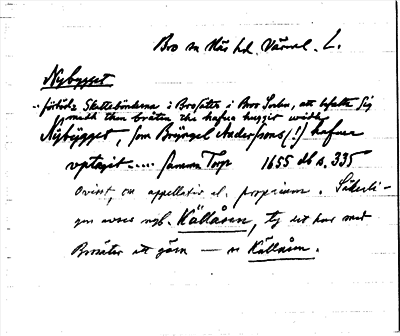 Bro sn Näs hd. Värml. L.
Nybygget
.. förbiuds Skattebönderna i Brosätter i Bro Sochn, att befatta sig
medh then bråten the hafua huggit widh
Nÿbÿgget, som Bryngel Andersons (!) hafuer
vptagit .... samma Torp 1655 db s. 335
Ovisst, om appellativ el. proprium. Säkerli-
gen avses ngb. Källåsen, ty det har med
Brosäter att göra — se Källåsen.